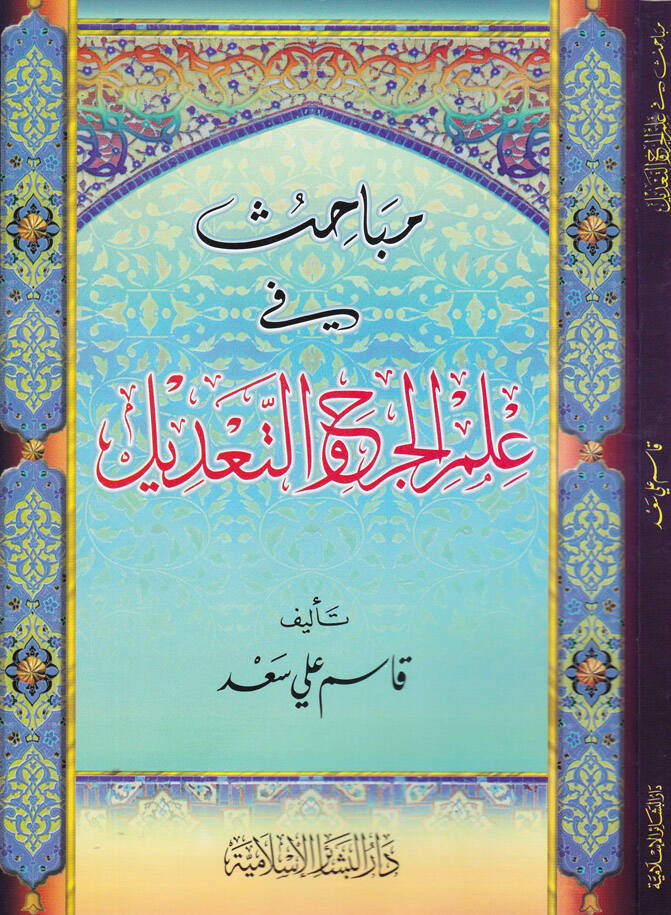 مباحِثُ
في
عِلْمِ الجرح والتَّعْدِيل
تأليف
قاسم علي سَعْد
دَارُ البَشَائِرِ الإِسْلَامِيَّة
مباحث في علم الجرح والتعديل
قاسم علي سَعْد
دَارُ البَشَائِرِ الإِسْلَامِيَّة